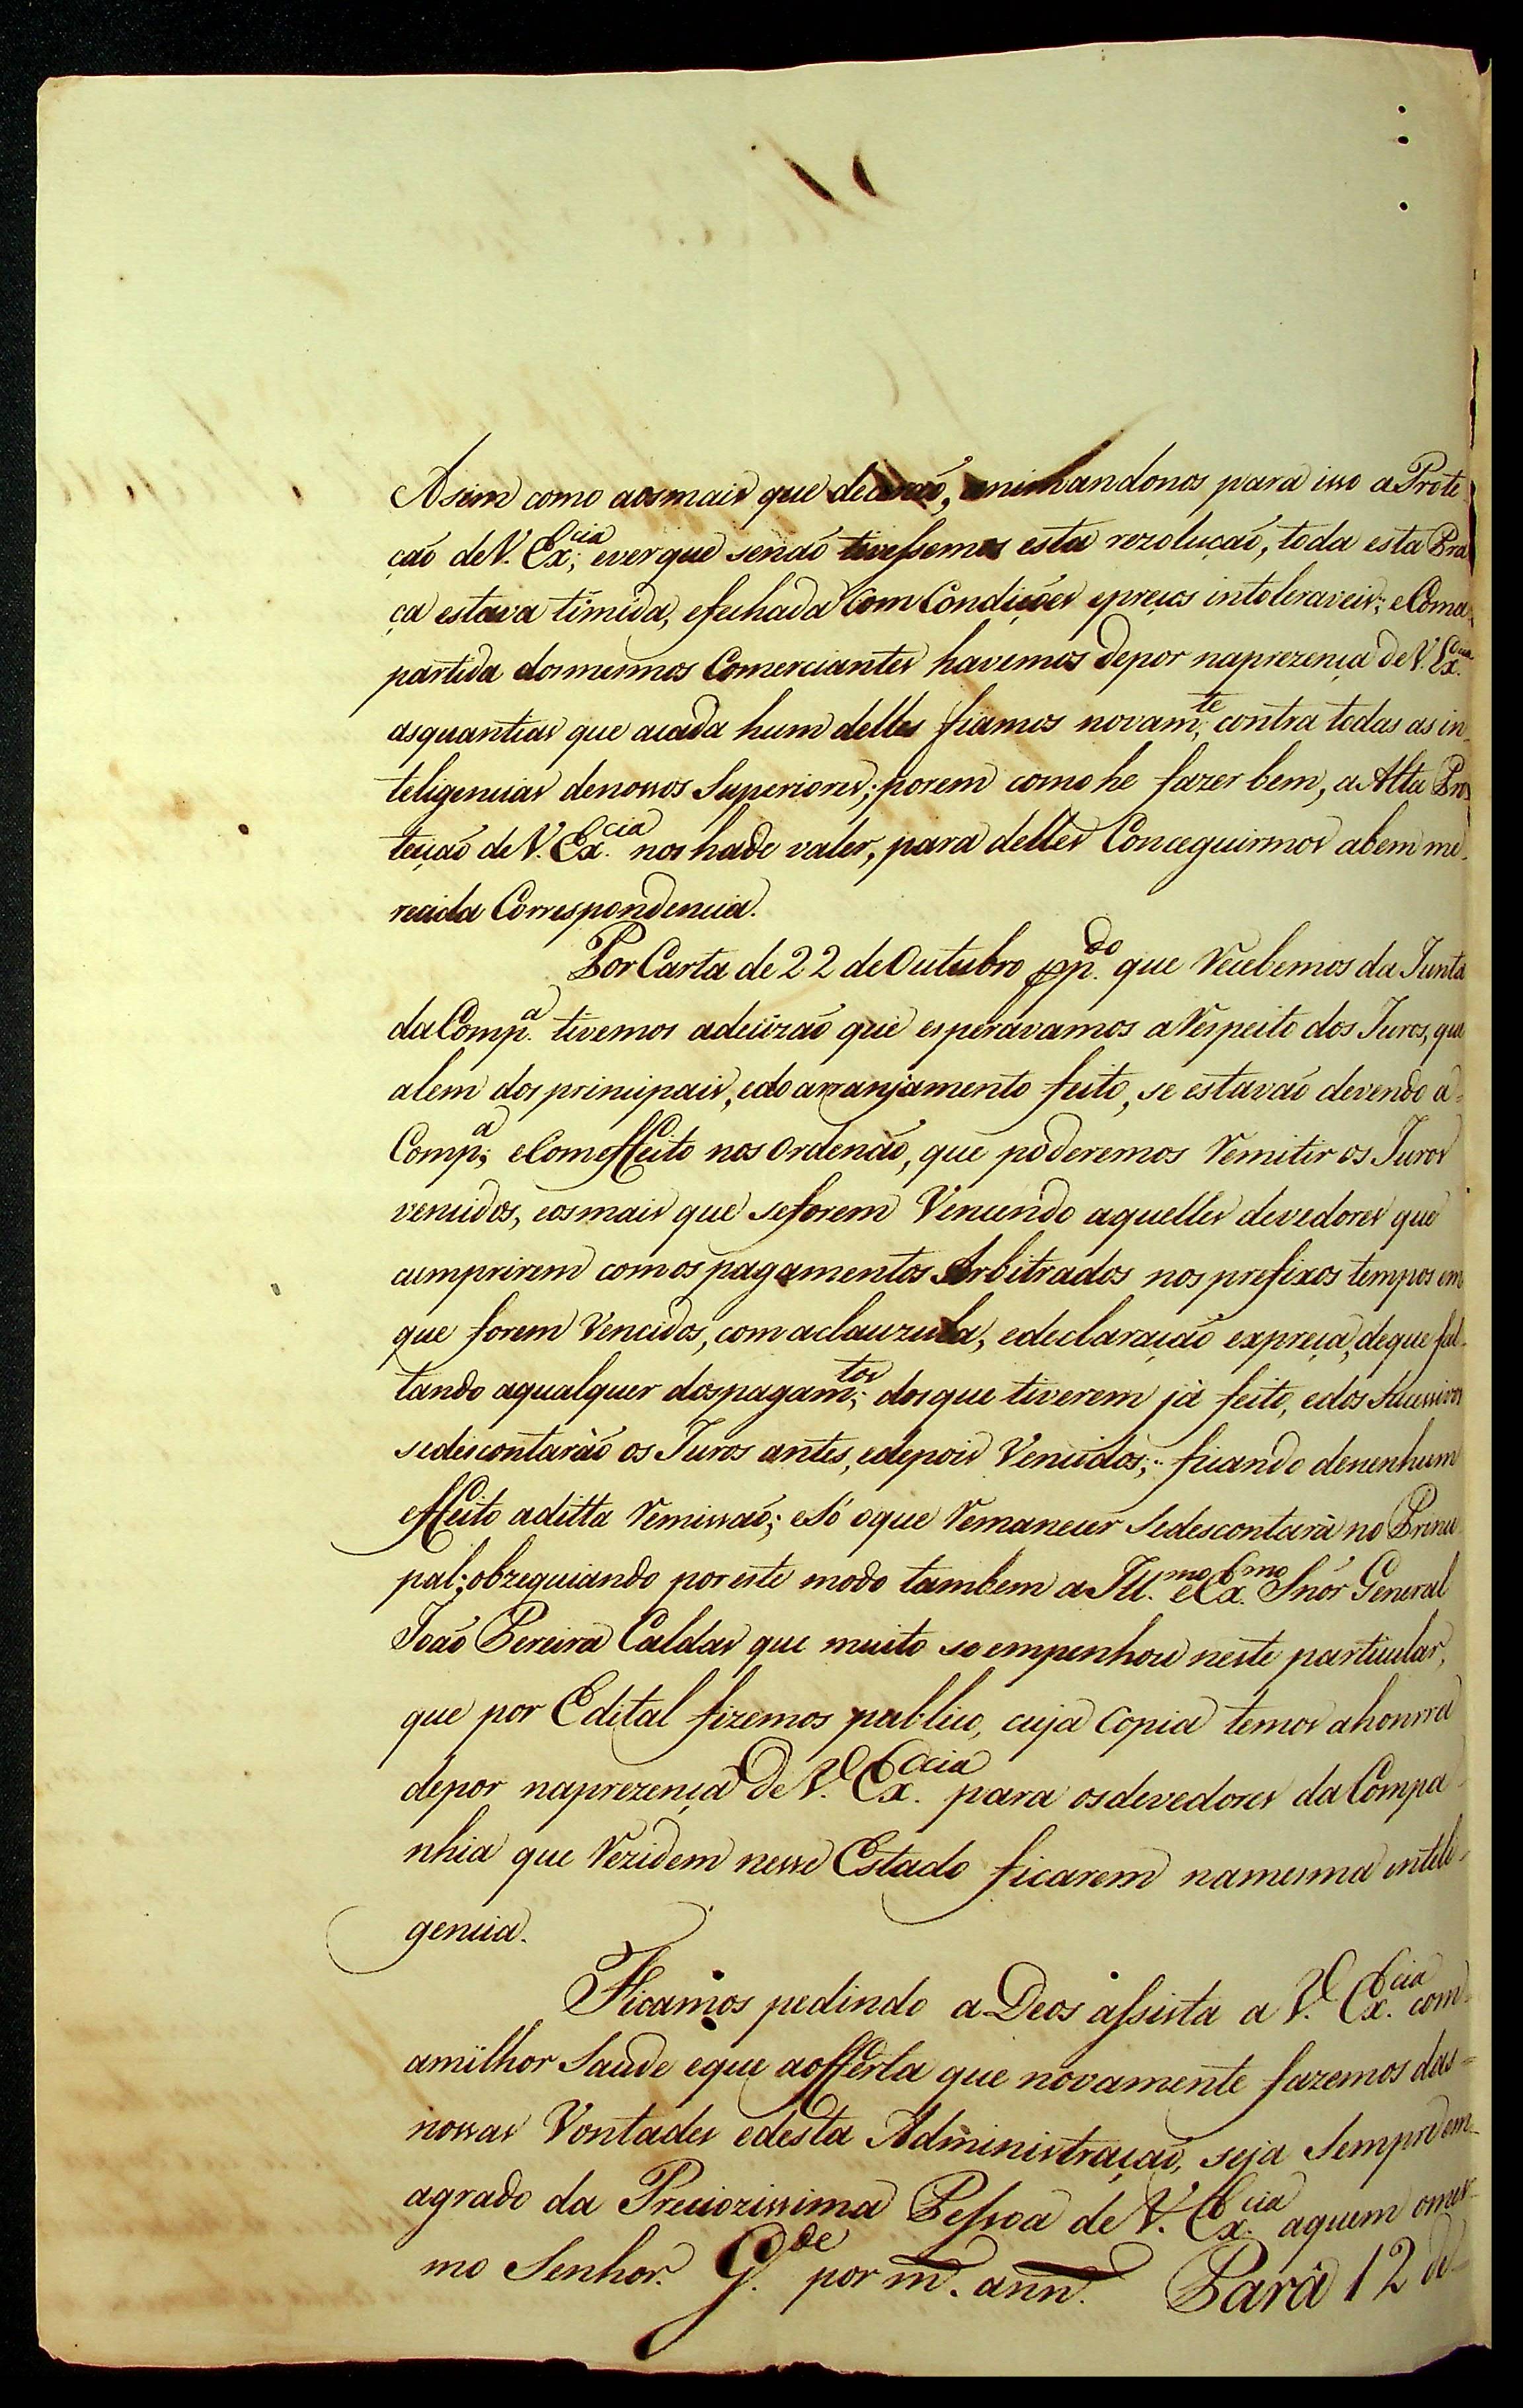 Asim como aosmais que decerao, animandonos para isso a Prote
ção de V. Ex.cia; ever que senaõ tivessemos esta rezoluçaõ, toda esta Pra
ça estava timida, efechada Com Condiçoẽs epreços intoleraveis; eComa
partida dosmesmos Comerciantes havemos depor naprezença de V. Ex.cia
asquantias que acada hum delles fiamos novam.te; contra todas as in-
teligencias denossos Superiores; porem como he fazer bem, a Alta Pro
teçaõ de V. Ex.cia nos hade valer, para delles Conceguirmos abem me-
recida Correspondencia.
Por Carta de 22 de Outubro pp.do que recebemos da Junta
da Comp.a tivemos adecizaõ que esperavamos a respeito dos Juros, que
alem dos principais, edo arranjamento feito, se estavaõ devendo a-
Comp.a; eCom effeito nos Ordenaõ, que poderemos remitir os Juros
vencidos, eosmais que seforem Vencendo aquelles devedores que
cumprirem com os pagamentos Arbitrados nos prefixos tempos em
que forem Vencidos, com aclauzula, edeclaraçaõ expreça, deque fal-
tando aqualquer dospagam.tos; dosque tiverem já feito, edos Sucessivos
sedescontaràõ os Juros antes, edepois Vencidos; ficando denenhum
effeito aditta remissaõ; eSó oque remanecer Sedescontarà no Princi
pal; obzequiando por este modo tambem a Ill.mo e Ex.mo Snõr General
Joaõ Pereira Caldas que muito se empenhou neste particular,
que por Edital fizemos publico, cuja Copia temos ahonrra
depor naprezença de V. Ex.cia para osdevedores da Compa-
nhia que rezidem nesse Estado ficarem namesma inteli-
gencia.
Ficamos pedindo a Deos assista a V. Ex.cia com-
amilhor Saude eque aofferta que novamente fazemos das-
nossas Vontades edesta Administraçaõ, seja Sempre em-
agrado da Preciozissima Pessoa de V. Ex.cia aquem omes-
mo Senhor. G.de por m. ann. Parà 12 de